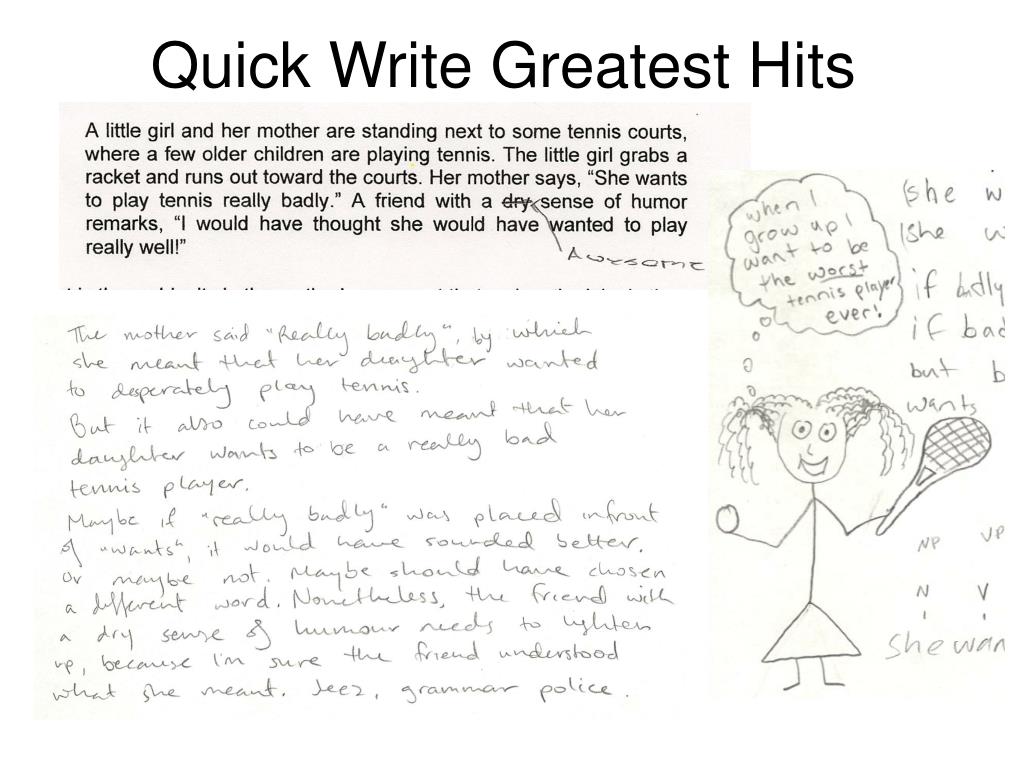 Quick Write Greatest Hits
A little girl and her mother are standing next to some tennis courts,
where a few older children are playing tennis. The little girl grabs a
racket and runs out toward the courts. Her mother says, “She wants
to play tennis really badly.” A friend with a dry sense of humor
remarks, “I would have thought she would have wanted to play
really well!”
Awesome
The mother said "Really badly", by which
she meant that her daughter wanted
to desperately play tennis.
But it also could have meant that her
daughter wants to be a really bad
tennis player.
Maybe if "really badly" was placed infront
of "wants", it would have sounded better.
Or maybe not. Maybe should have chosen
a different word. Nonetheless, the friend with
a dry sense of humour needs to lighten
up, because I'm sure the friend understood
what she meant. Jeez, grammar police.
when I
grow up I
want to be
the worst
tennis player
ever!
(she w
(she w
if badly
if bad
but b
wants
NP VP
N V
she wan